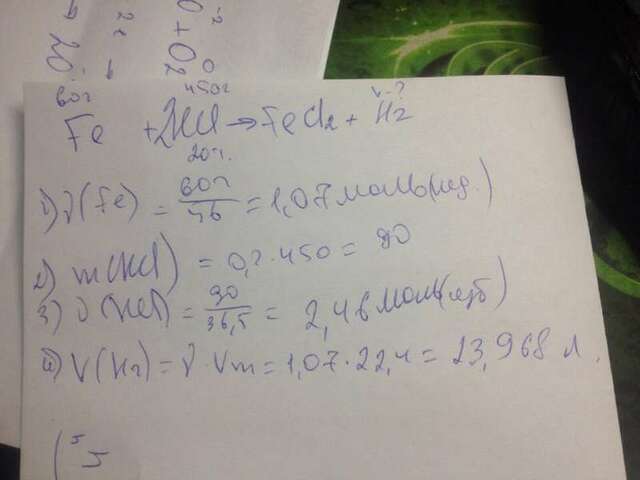 60г 450г V-?
Fe + 2HCl → FeCl2 + H2
20%
1) ν(Fe) = 60г/56 = 1,07 моль(нед.)
2) m(HCl) = 0,2·450 = 90
3) ν(HCl) = 90/36,5 = 2,46 моль(изб)
4) V(H2) = ν·Vm = 1,07·22,4 = 23,968 л.